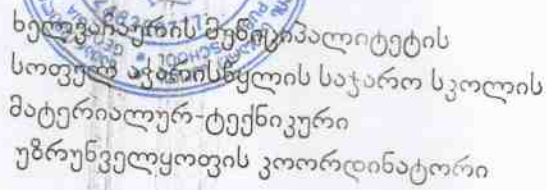 ხელვაჩაურის მუნიციპალიტეტის
სოფელ აჭარისწყლის საჯარო სკოლის
მატერიალურ-ტექნიკური
უზრუნველყოფის კოორდინატორი